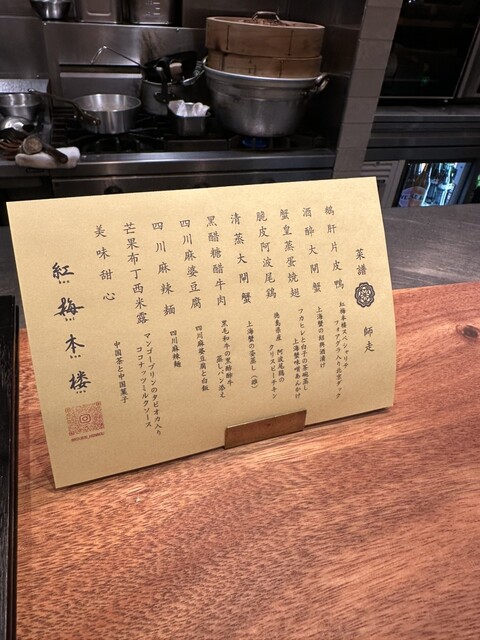 菜譜 師走
鵝肝片皮鴨
紅梅本楼スペシャリテ
フォアグラ入り北京ダック
酒醉大閘蟹
上海蟹の紹興酒漬け
蟹皇蒸蛋焼翅
フカヒレと白子の茶碗蒸し
上海蟹味噌あんかけ
脆皮阿波尾鶏
徳島県産 阿波尾鶏の
クリスピーチキン
清蒸大閘蟹
上海蟹の姿蒸し(雄)
黑醋糖醋牛肉
黒毛和牛の黒酢酢牛
蒸しパン添え
四川麻婆豆腐
四川麻婆豆腐と白飯
四川麻辣麺
四川麻辣麺
芒果布丁西米露
マンゴープリンのタピオカ入り
ココナッツミルクソース
美味甜心
中国茶と中国菓子
紅梅本楼